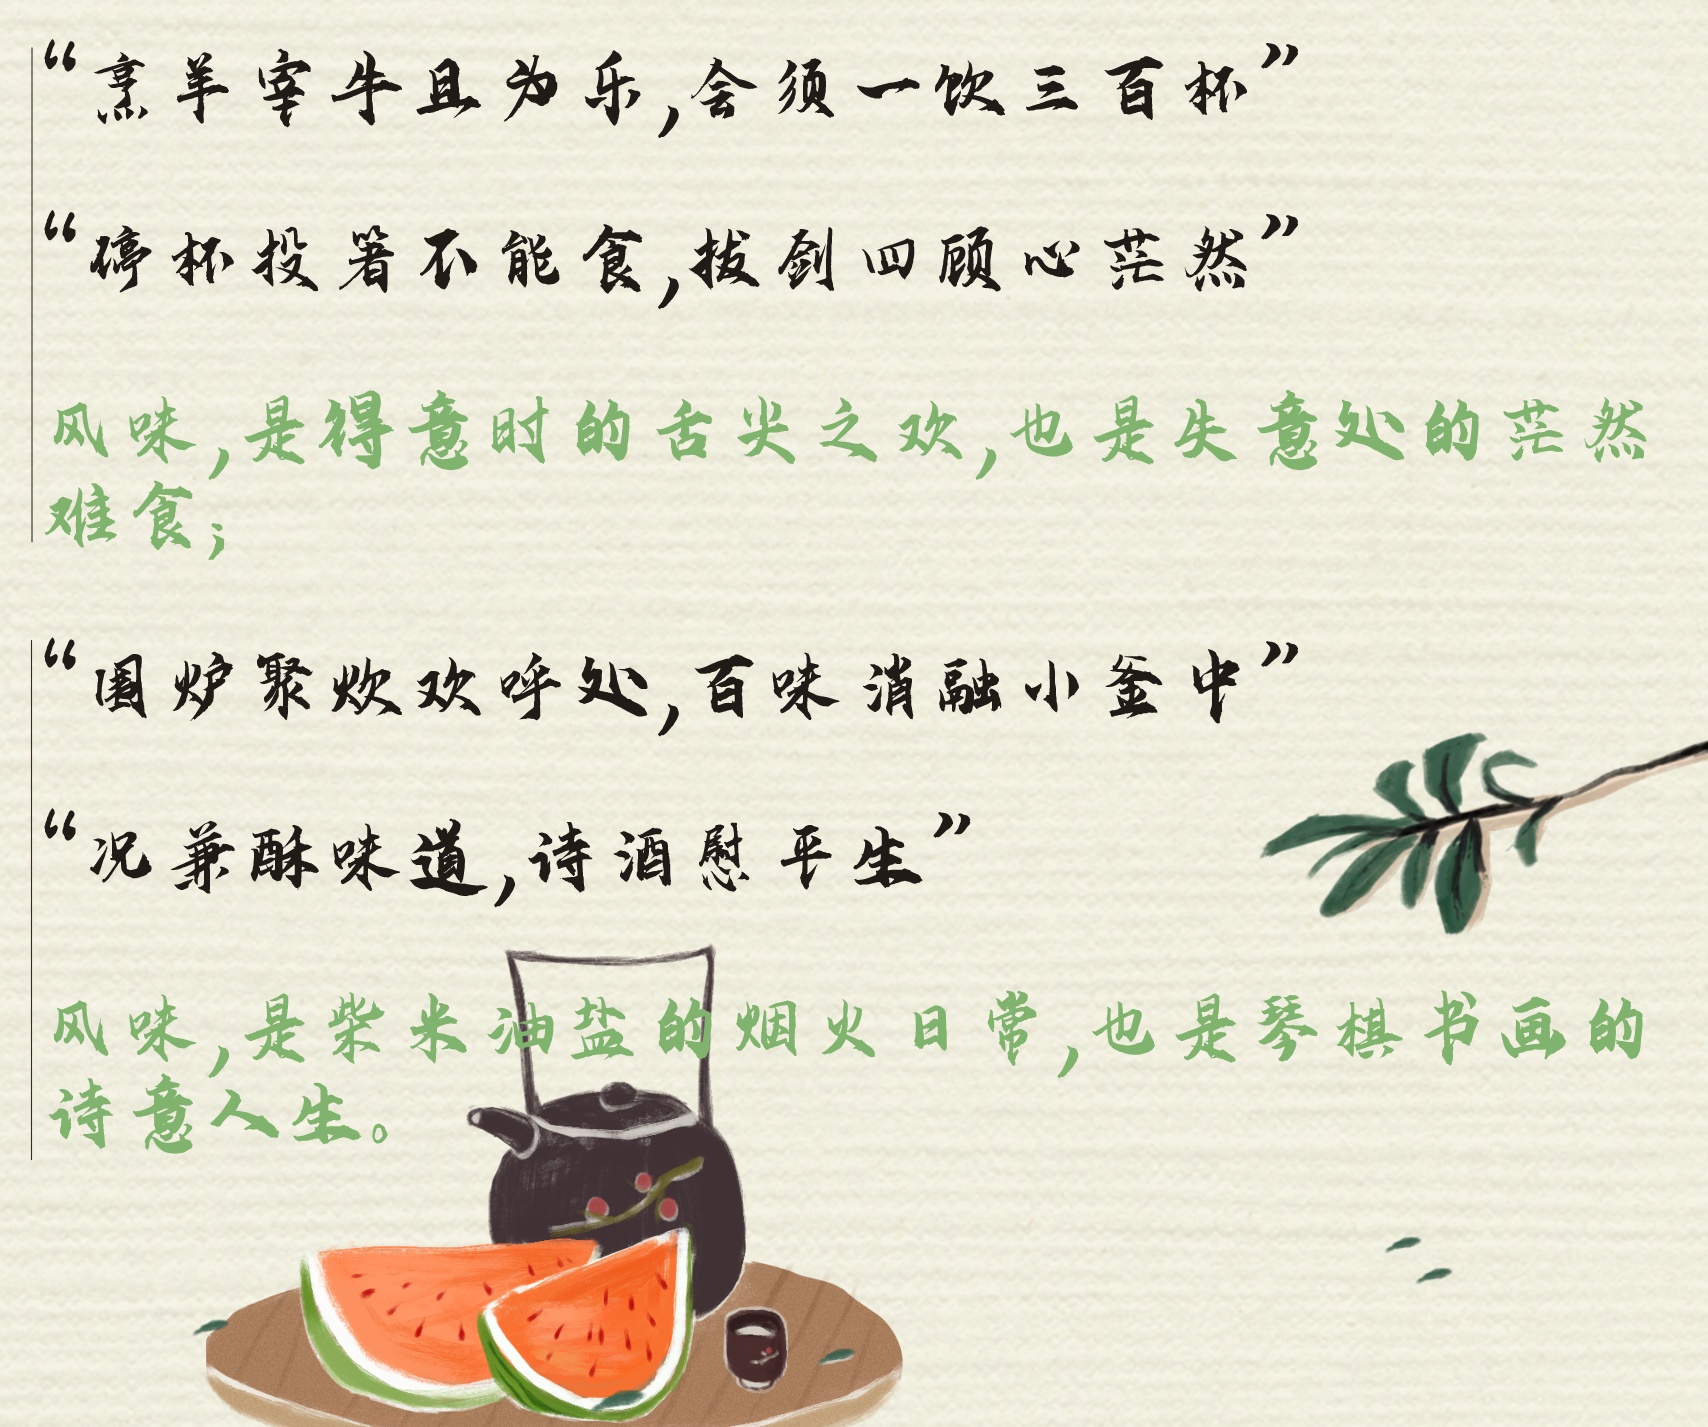 “烹羊宰牛且为乐,会须一饮三百杯”
“停杯投箸不能食,拔剑四顾心茫然”
风味,是得意时的舌尖之欢,也是失意处的茫然
难食;
“围炉聚炊欢呼处,百味消融小釜中”
“况兼酥味道,诗酒慰平生”
风味,是柴米油盐的烟火日常,也是琴棋书画的
诗意人生。